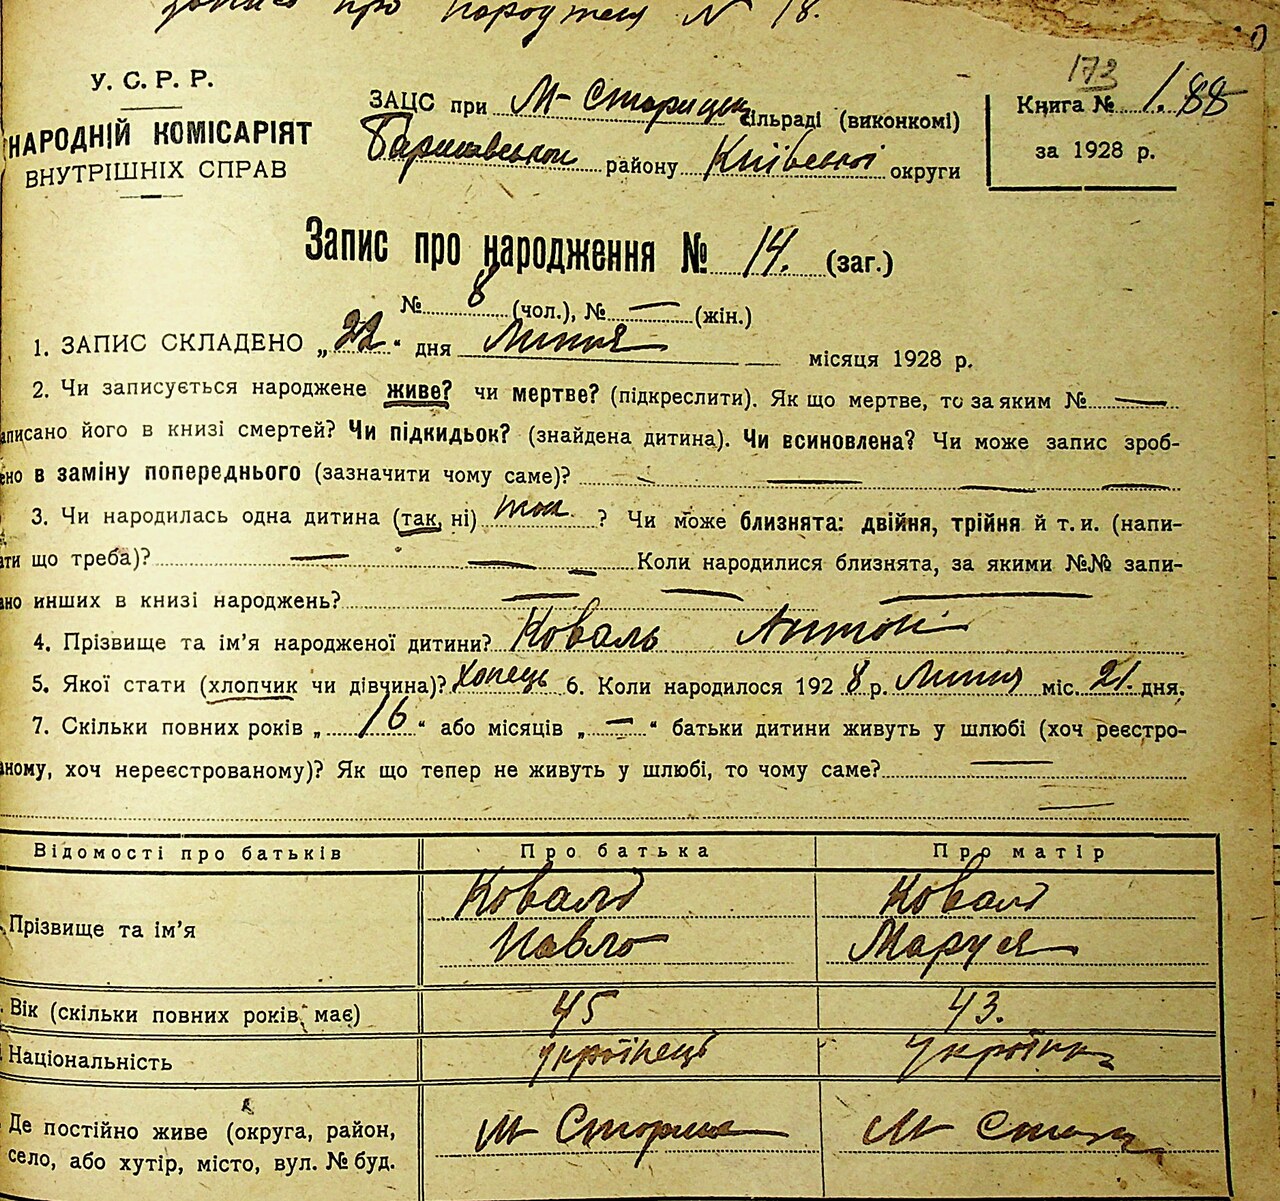 запис про народженя № 18.
173
У. С. Р. Р.
НАРОДНІЙ КОМІСАРІЯТ
ВНУТРІШНІХ СПРАВ
ЗАЦС при М-Старицькій сільраді (виконкомі)
району Київської округи
Книга № 1. 88
за 1928 р.
Запис про народження № 14. (заг.)
№ 8 (чол.), № — (жін.)
1. ЗАПИС СКЛАДЕНО „22“ дня Липня місяця 1928 р.
2. Чи записується народжене живе? чи мертве? (підкреслити). Як що мертве, то за яким № —
аписано його в книзі смертей? Чи підкидьок? (знайдена дитина). Чи всиновлена? Чи може запис зроб-
ено в заміну попереднього (зазначити чому саме)? — — — —
3. Чи народилась одна дитина (так, ні) так ? Чи може близнята: двійня, трійня й т. и. (напи-
ати що треба)? — — — Коли народилися близнята, за якими №№ запи-
ано инших в книзі народжень? — — —
4. Прізвище та ім'я народженої дитини? Коваль Антон
5. Якої стати (хлопчик чи дівчина)? Хопець 6. Коли народилося 1928 р. Липня міс. 21. дня.
7. Скільки повних років „16“ або місяців „—“ батьки дитини живуть у шлюбі (хоч реєстро-
аному, хоч нереєстрованому)? Як що тепер не живуть у шлюбі, то чому саме? —
Відомості про батьків Про батька Про матір
Прізвище та ім'я Коваль Павло Коваль Маруся
Вік (скільки повних років має) 45 43.
Національність українець українка
Де постійно живе (округа, район,
село, або хутір, місто, вул. № буд. М Стариця М Стар